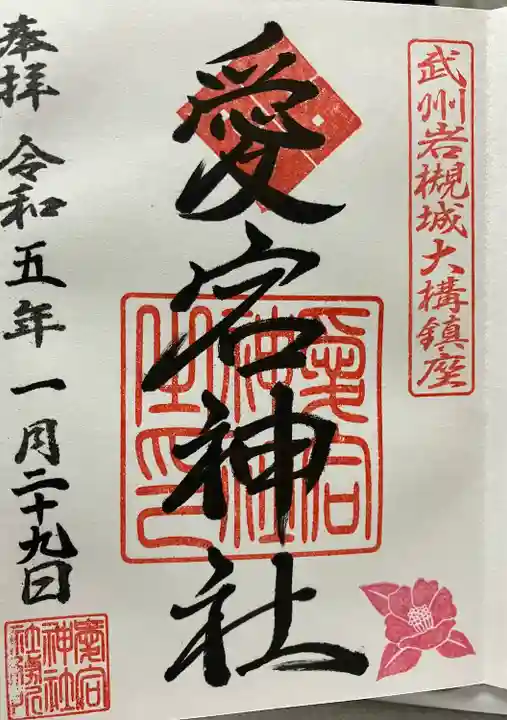 武州岩槻城大構鎮座
愛宕神社
愛宕
神社
之印
奉拝 令和五年 一月二十九日
愛宕
神社
社務所